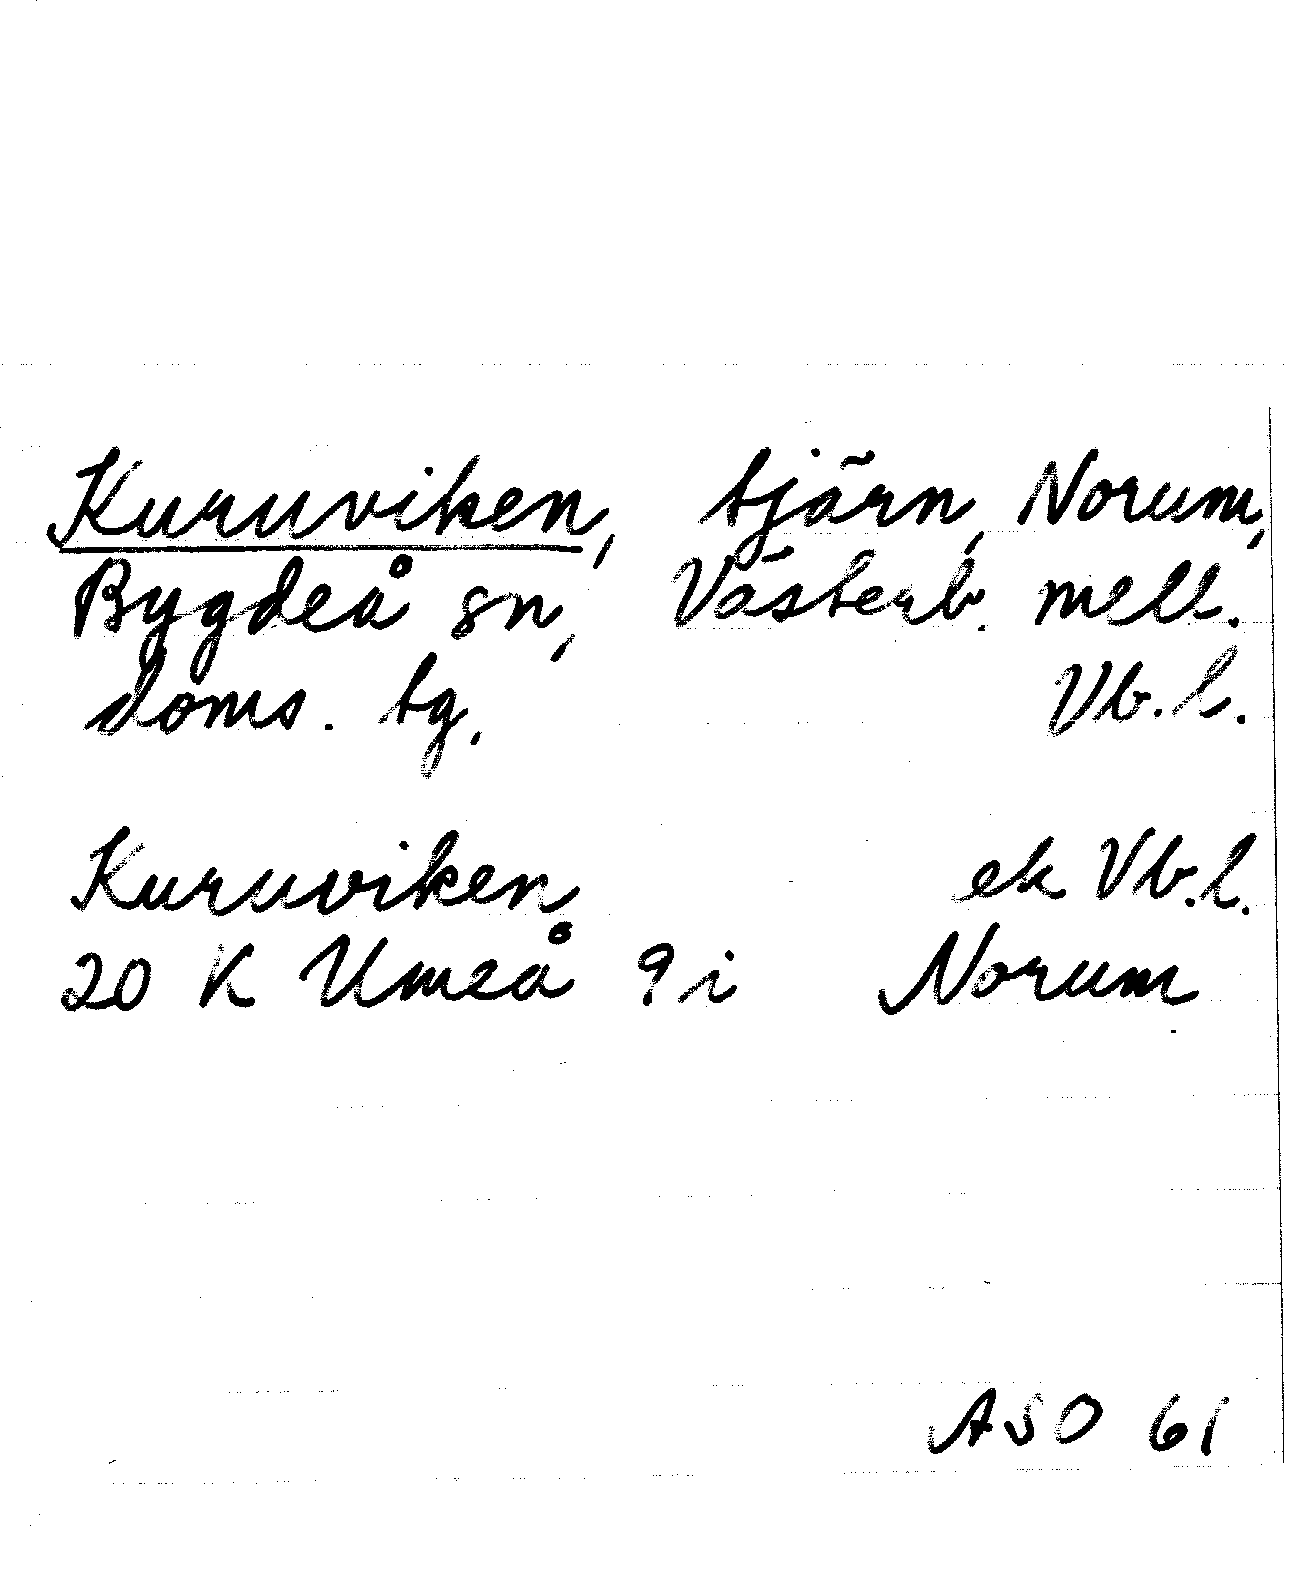 Kuruviken, tjärn, Norum,
Bygdeå sn, Västerb. mell.
doms. tg. Vb. l.
Kuruviken ek Vb. l.
20 K Umeå 9 i Norum
ASO 61